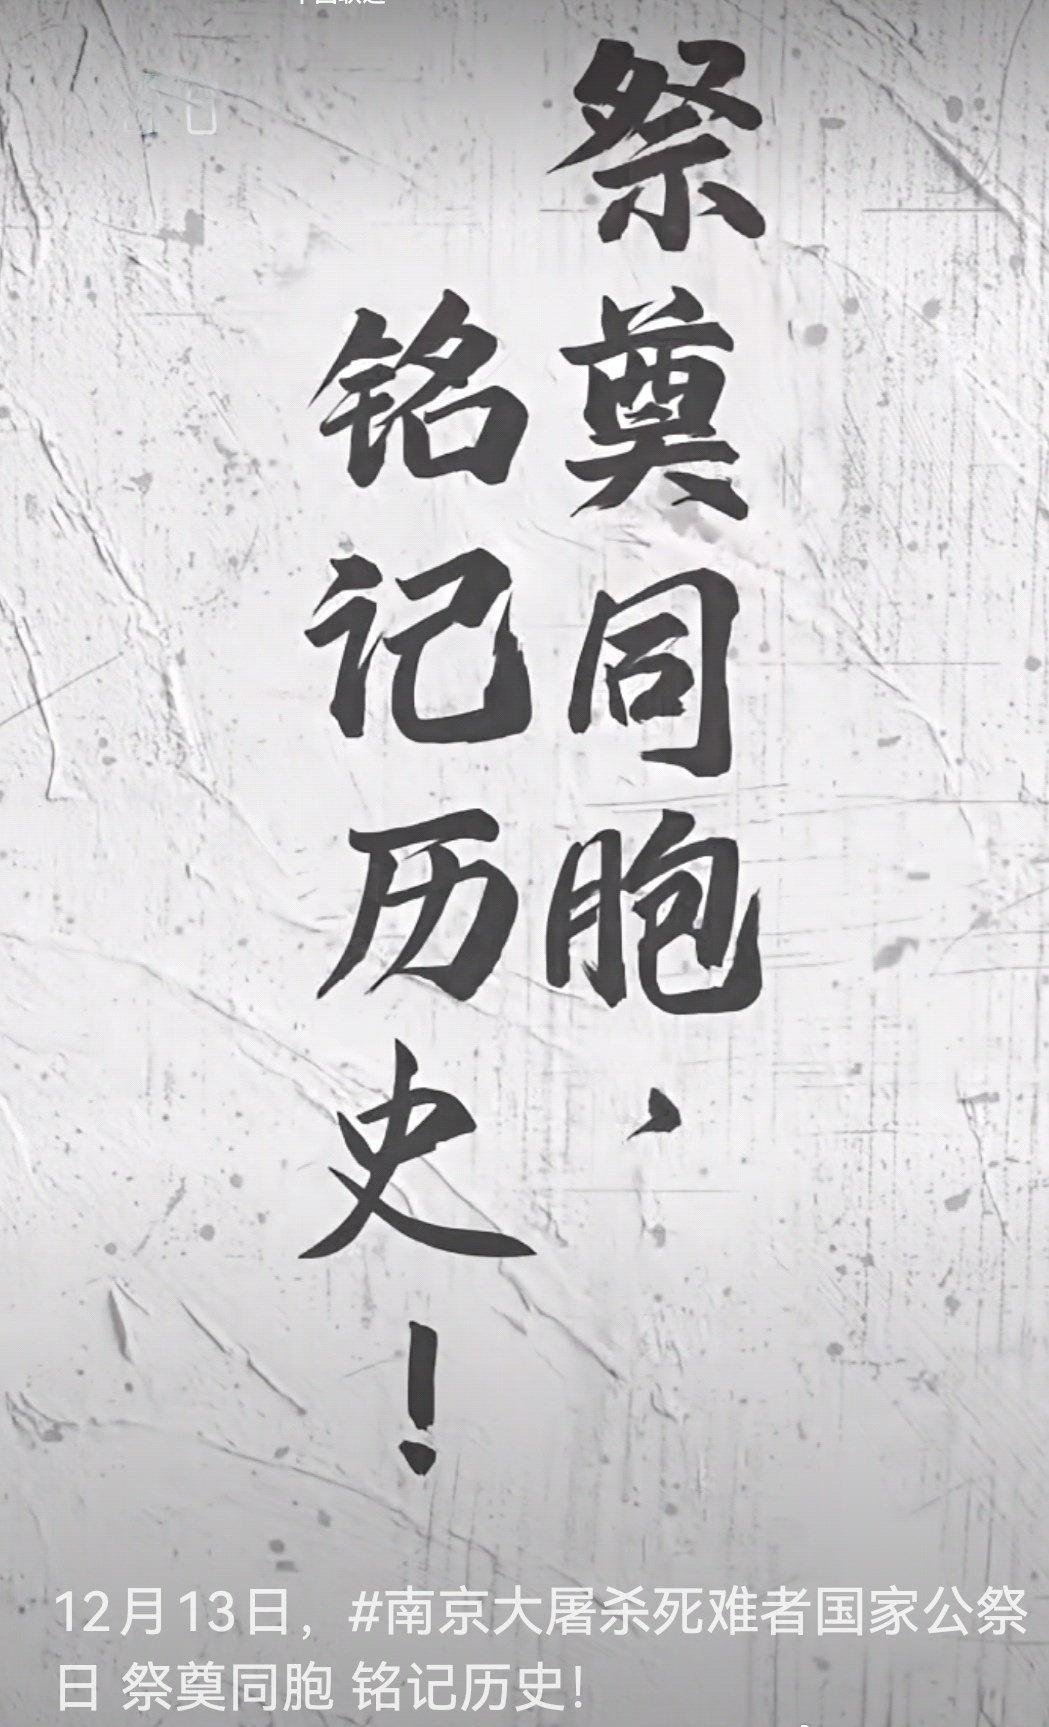 祭奠同胞，
铭记历史！
12月13日，#南京大屠杀死难者国家公祭
日 祭奠同胞 铭记历史！